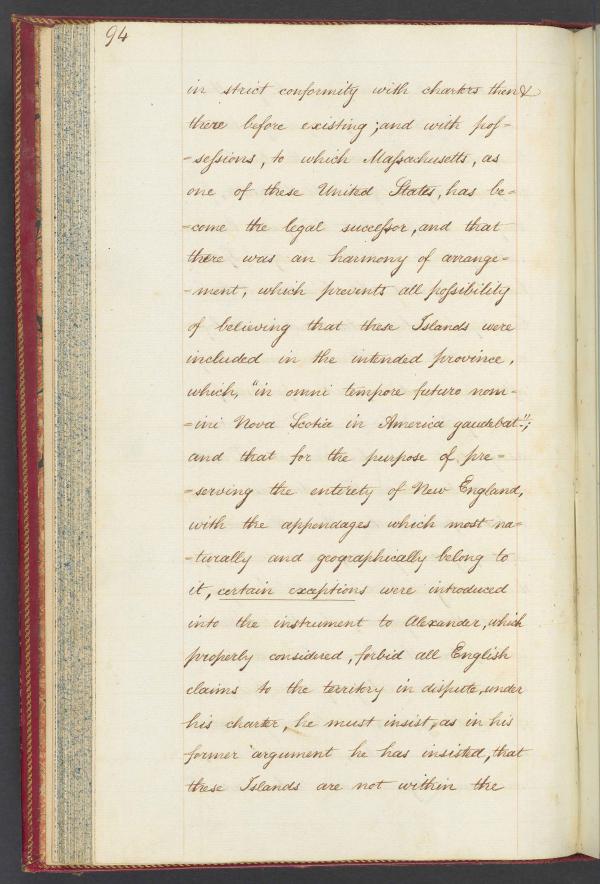 94
in strict conformity with charters then &
there before existing; and with pos-
-sessions, to which Massachusetts, as
one of these United States, has be-
-come the legal successor, and that
there was an harmony of arrange-
-ment, which prevents all possibility
of believing that these Islands were
included in the intended province,
which, "in omni tempore futuro nom-
-ini Nova Scotia in America gaudebat";
and that for the purpose of pre-
-serving the entirety of New England,
with the appendages which most na-
-turally and geographically belong to
it, certain exceptions were introduced
into the instrument to Alexander, which
properly considered, forbid all English
claims to the territory in dispute, under
his charter, he must insist, as in his
former argument he has insisted, that
these Islands are not within the